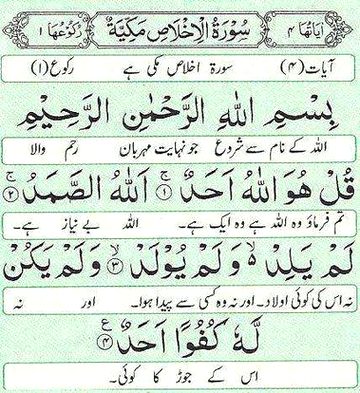 اٰيَاتُهَا ۴ سُوْرَةُ الْاِخْلَاصِ مَكِّيَّةٌ رُكُوْعُهَا ۱
آیات (۴) سورۃ اخلاص مکی ہے رکوع (۱)
بِسْمِ اللّٰهِ الرَّحْمٰنِ الرَّحِيْمِ
اللہ کے نام سے شروع جو نہایت مہربان رحم والا
قُلْ هُوَ اللّٰهُ اَحَدٌ ۚ﴿۱﴾ اَللّٰهُ الصَّمَدُ ۚ﴿۲﴾
تم فرماؤ وہ اللہ ہے وہ ایک ہے۔ اللہ بے نیاز ہے۔
لَمْ يَلِدْ ۙ۬ وَلَمْ يُوْلَدْ ۙ﴿۳﴾ وَلَمْ يَكُنْ
نہ اس کی کوئی اولاد۔ اور نہ وہ کسی سے پیدا ہوا۔ اور نہ
لَّهٗ كُفُوًا اَحَدٌ ﴿۴﴾ ع
اس کے جوڑ کا کوئی۔